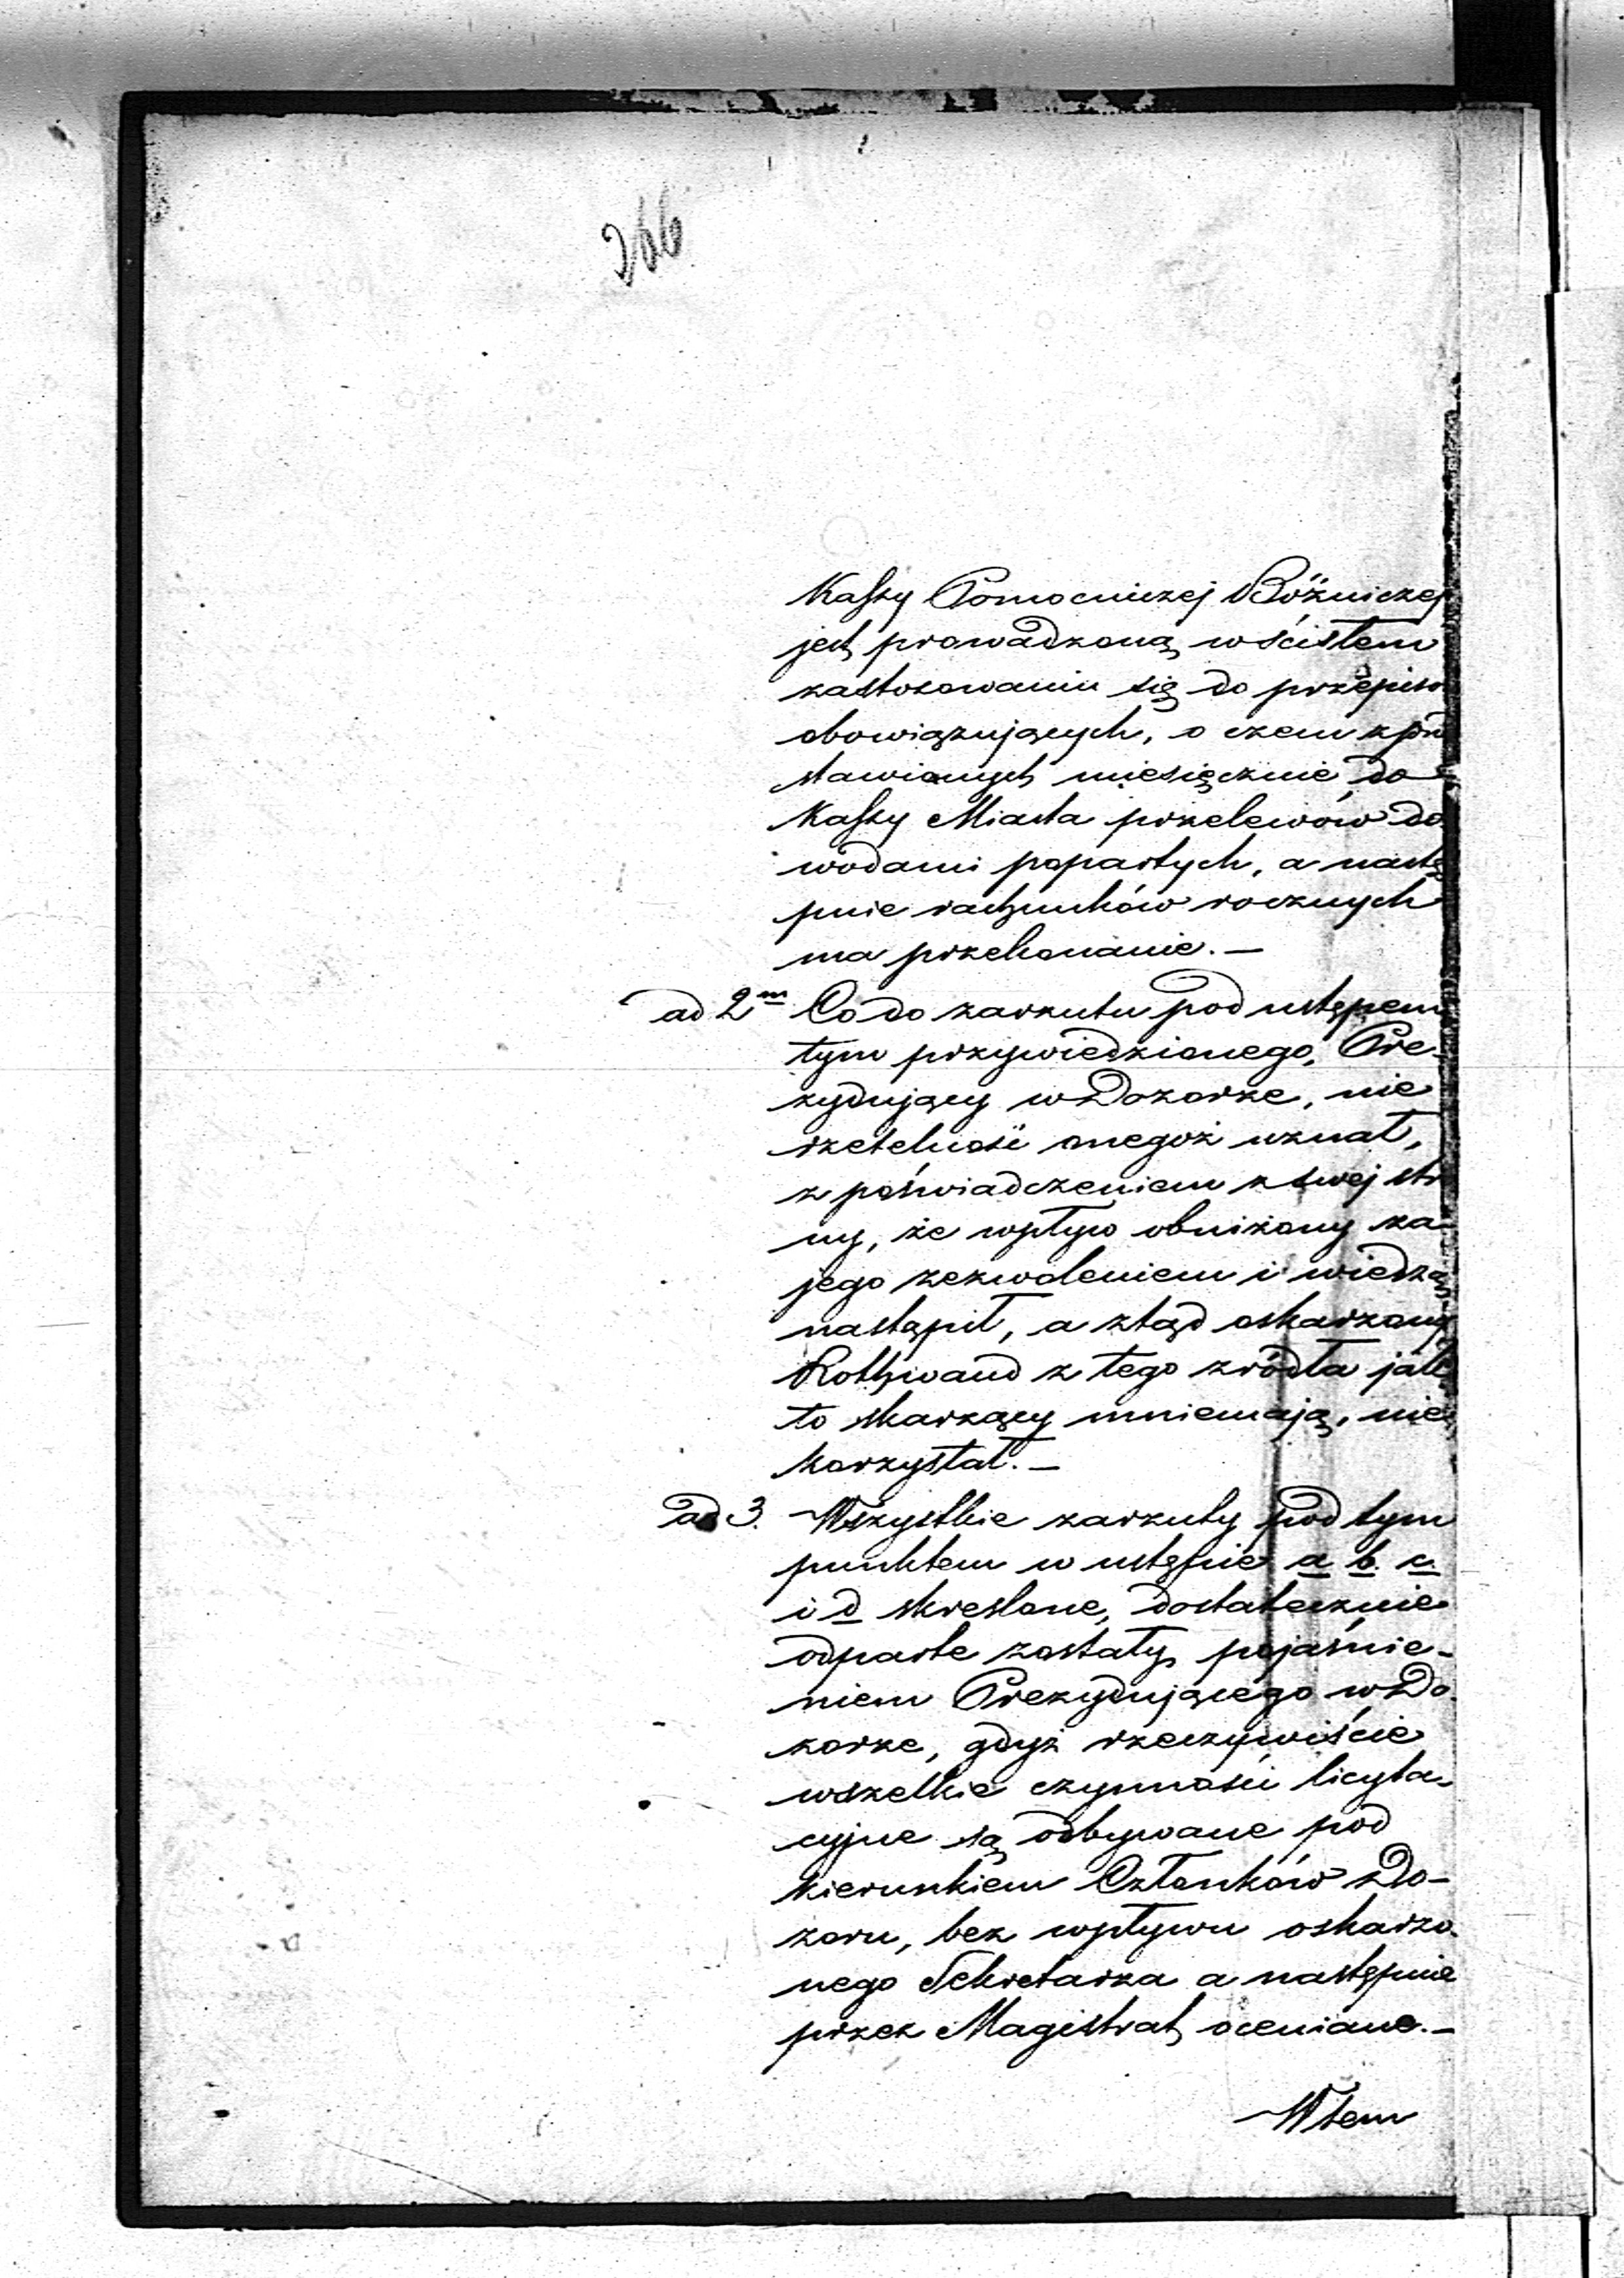 266
Kassy Pomocniczej Bóźniczej
jest prowadzoną w ścisłem
zastosowaniu się do przepisó
obowiązujących, o czem z prze
stawionych miesięcznie do
Kassy Miasta przelewów do
wodami popartych, a nastę
pnie rachunków rocznych
ma przekonanie. —
ad 2m Co do zarzutu pod ustępem
tym przywiedzionego, Pre-
zydujący w Dozorze, nie
rzetelność onegoż uznał,
z poświadczeniem z swej stro
ny, że wpływ obniżony za
jego zezwoleniem i wiedzą
nastąpił, a ztąd oskarżony
Rothwand z tego zródła jak
to skarżący mniemają, nie
korzystał. —
ad 3. Wszystkie zarzuty pod tym
punktem w ustępie a b. c.
i d skreslone, dostatecznie
odparte zostały pojaśnie-
niem Prezydującego w Do
zorze, gdyż rzeczywiście
wszelkie czynności licyta-
cyjne są odbywane pod
kierunkiem Członków Do-
zoru, bez wpływu oskarżo-
nego Sekretarza a następnie
przez Magistrat oceniane. —
W tem